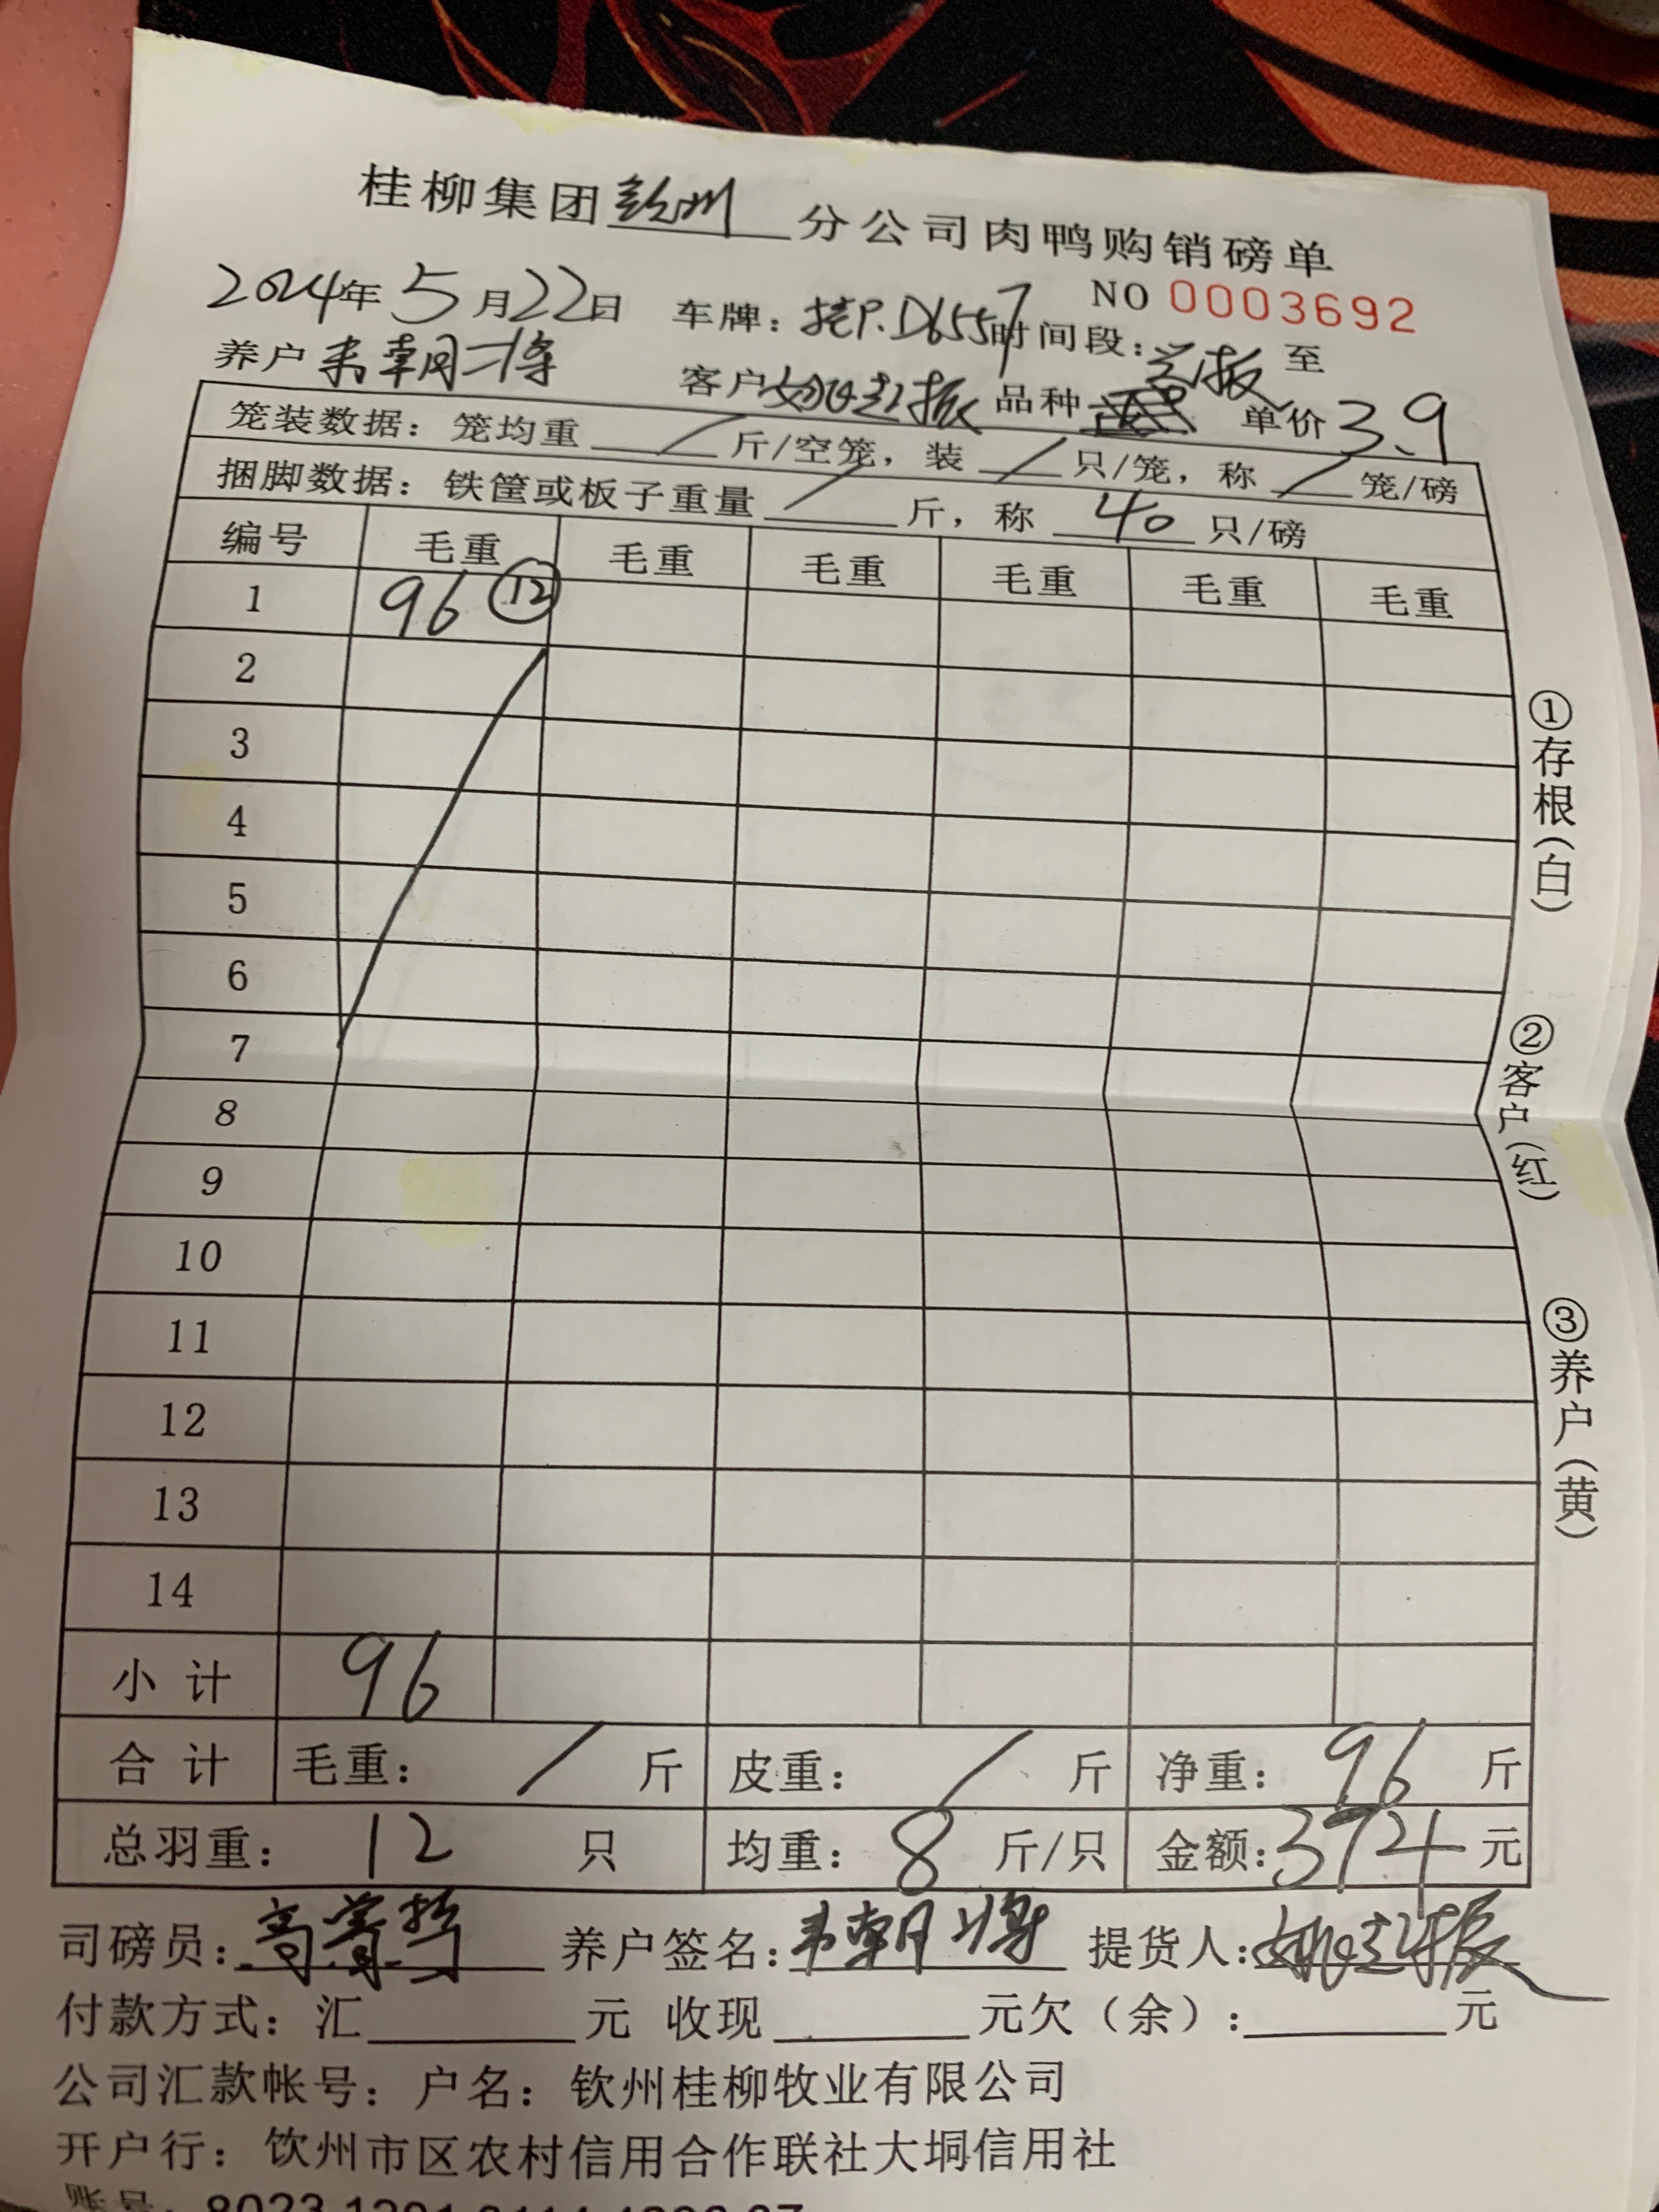 桂柳集团钦州分公司肉鸭购销磅单
2024年5月22日 车牌：桂P.D6557 时间段： 至 NO 0003692
养户韦朝将 客户姚赵振 品种 单价3.9
笼装数据：笼均重 / 斤/空笼，装 / 只/笼，称 / 笼/磅
捆脚数据：铁筐或板子重量 / 斤，称 40 只/磅
编号 毛重 毛重 毛重 毛重 毛重 毛重
1 96 ⑫
2
3
4
5
6
7
8
9
10
11
12
13
14
小计 96
合计 毛重： / 斤 皮重： / 斤 净重：96 斤
总羽重：12 只 均重：8 斤/只 金额：374元
司磅员： 养户签名：韦朝将 提货人：姚赵振
付款方式：汇 元 收现 元欠（余）： 元
公司汇款帐号：户名：钦州桂柳牧业有限公司
开户行：钦州市区农村信用合作联社大垌信用社
账号：
①存根（白）
②客户（红）
③养户（黄）